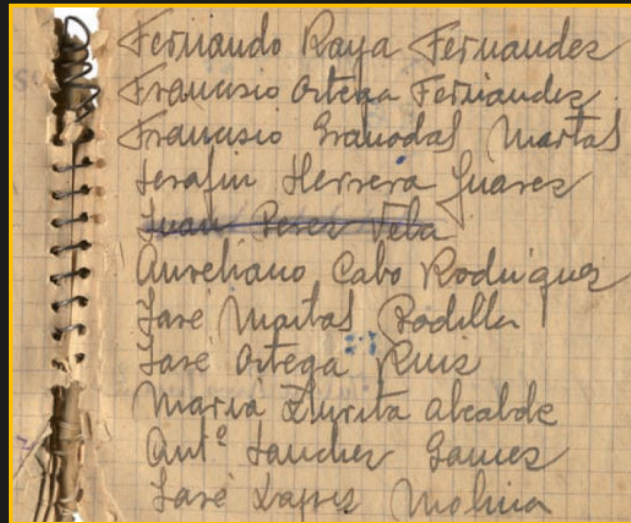 Fernando Raya Fernandez
Francisco Ortega Fernandez
Francisco Granodal Martos
Serafin Herrera Juarez
Juan Perez Vela
Aureliano Cabo Rodriguez
José Martos Padilla
José Ortega Ruiz
Maria Zurita alcalde
Antº Sanchez Gamez
José Lopez Molina